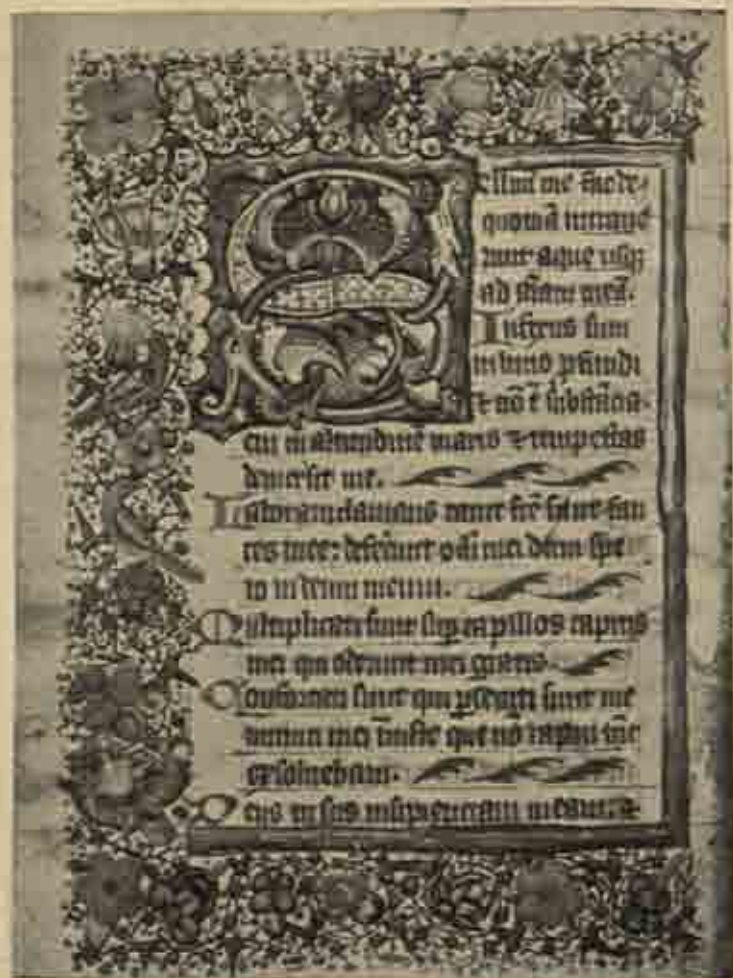 Saluū me fac de⸗
quoniā intraue
runt aque usq3
ad aīam meā.
Infixus sum
in limo pfundi
⁊ nō ē substātia.
eni in altitudinē maris ⁊ tempestas
demersit me.
Laboraui clamans rauce fcē sunt fau
ces mee: defecerunt oc̄li mei dum spe
ro in deum meum.
Multiplicati sunt sup capillos capitis
mei qui oderunt me gratis.
Confortati sunt qui psecuti sunt me
inimici mei iniuste que nō rapui tūc
exsoluebam.
Deus tu scis insipientiam meam: ⁊